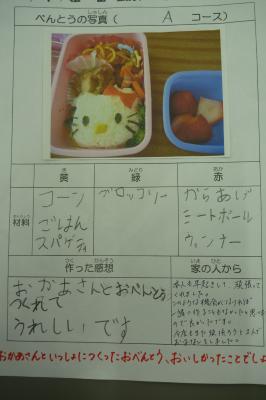 べんとうの写真（ A コース）
黄 緑 赤
材料
コーン
ごはん
スパゲティ
ブロッコリー
からあげ
ミートボール
ウィンナー
作った感想
家の人から
おかあさんとおべんとう
つくれて
うれしいです
本人も早起きして、頑張って
くれました。
おかあさんといっしょにつくったおべんとう、おいしかったことでしょ